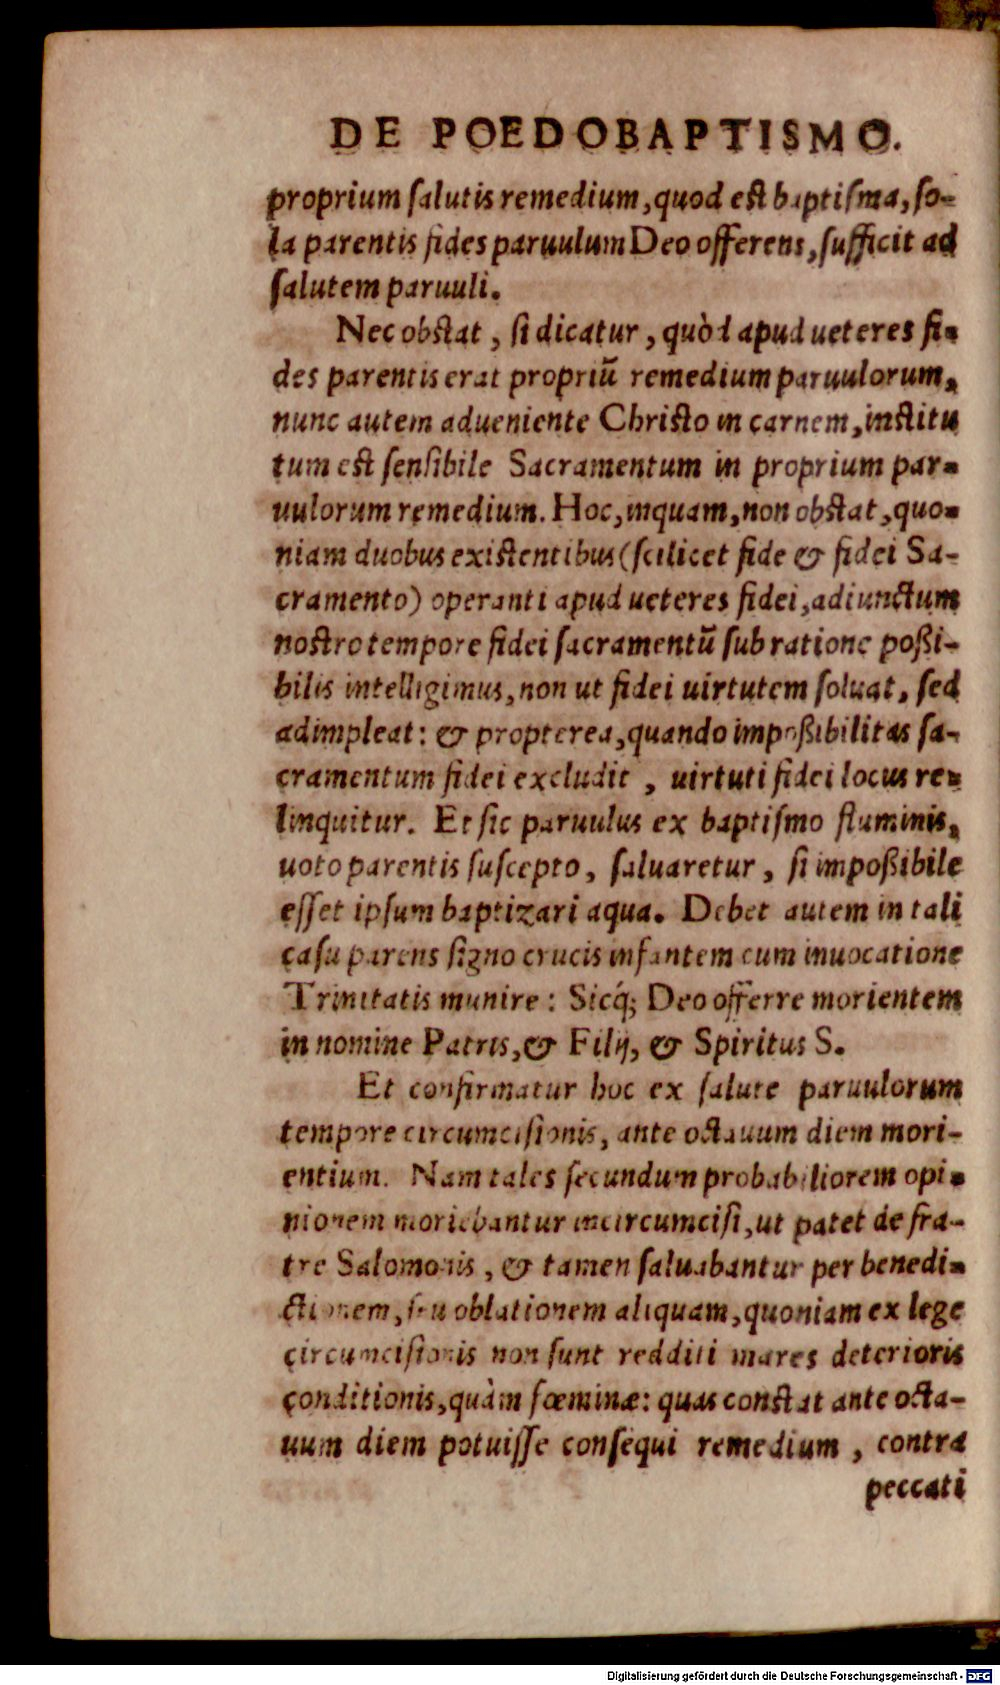 DE POEDOBAPTISMO.
proprium ſalutis remedium, quod eſt baptiſma, ſo-
la parentis fides paruulum Deo offerens, ſufficit ad
ſalutem paruuli.
Nec obſtat, ſi dicatur, quòd apud ueteres fi-
des parentis erat propriũ remedium paruulorum,
nunc autem adueniente Chriſto in carnem, inſtitu
tum eſt ſenſibile Sacramentum in proprium par-
uulorum remedium. Hoc, inquam, non obſtat, quo-
niam duobus exiſtentibus (ſcilicet fide & fidei Sa-
cramento) operanti apud ueteres fidei, adiunctum
noſtro tempore fidei ſacramentũ ſub ratione poßi-
bilis intelligimus, non ut fidei uirtutem ſoluat, ſed
adimpleat: & propterea, quando impoßibilitas ſa-
cramentum fidei excludit, uirtuti fidei locus re-
linquitur. Et ſic paruulus ex baptiſmo fluminis,
uoto parentis ſuſcepto, ſaluaretur, ſi impoßibile
eſſet ipſum baptizari aqua. Debet autem in tali
caſu parens ſigno crucis infantem cum inuocatione
Trinitatis munire: Sicq́; Deo offerre morientem
in nomine Patris, & Filij, & Spiritus S.
Et confirmatur hoc ex ſalute paruulorum
tempore circumciſionis, ante octauum diem mori-
entium. Nam tales ſecundum probabiliorem opi-
nionem moriebantur incircumciſi, ut patet de fra-
tre Salomonis, & tamen ſaluabantur per benedi-
ctionem, ſeu oblationem aliquam, quoniam ex lege
circumciſionis non ſunt redditi mares deterioris
conditionis, quàm fœminæ: quas conſtat ante octa-
uum diem potuiſſe conſequi remedium, contra
peccati
Digitalisierung gefördert durch die Deutsche Forschungsgemeinschaft - DFG